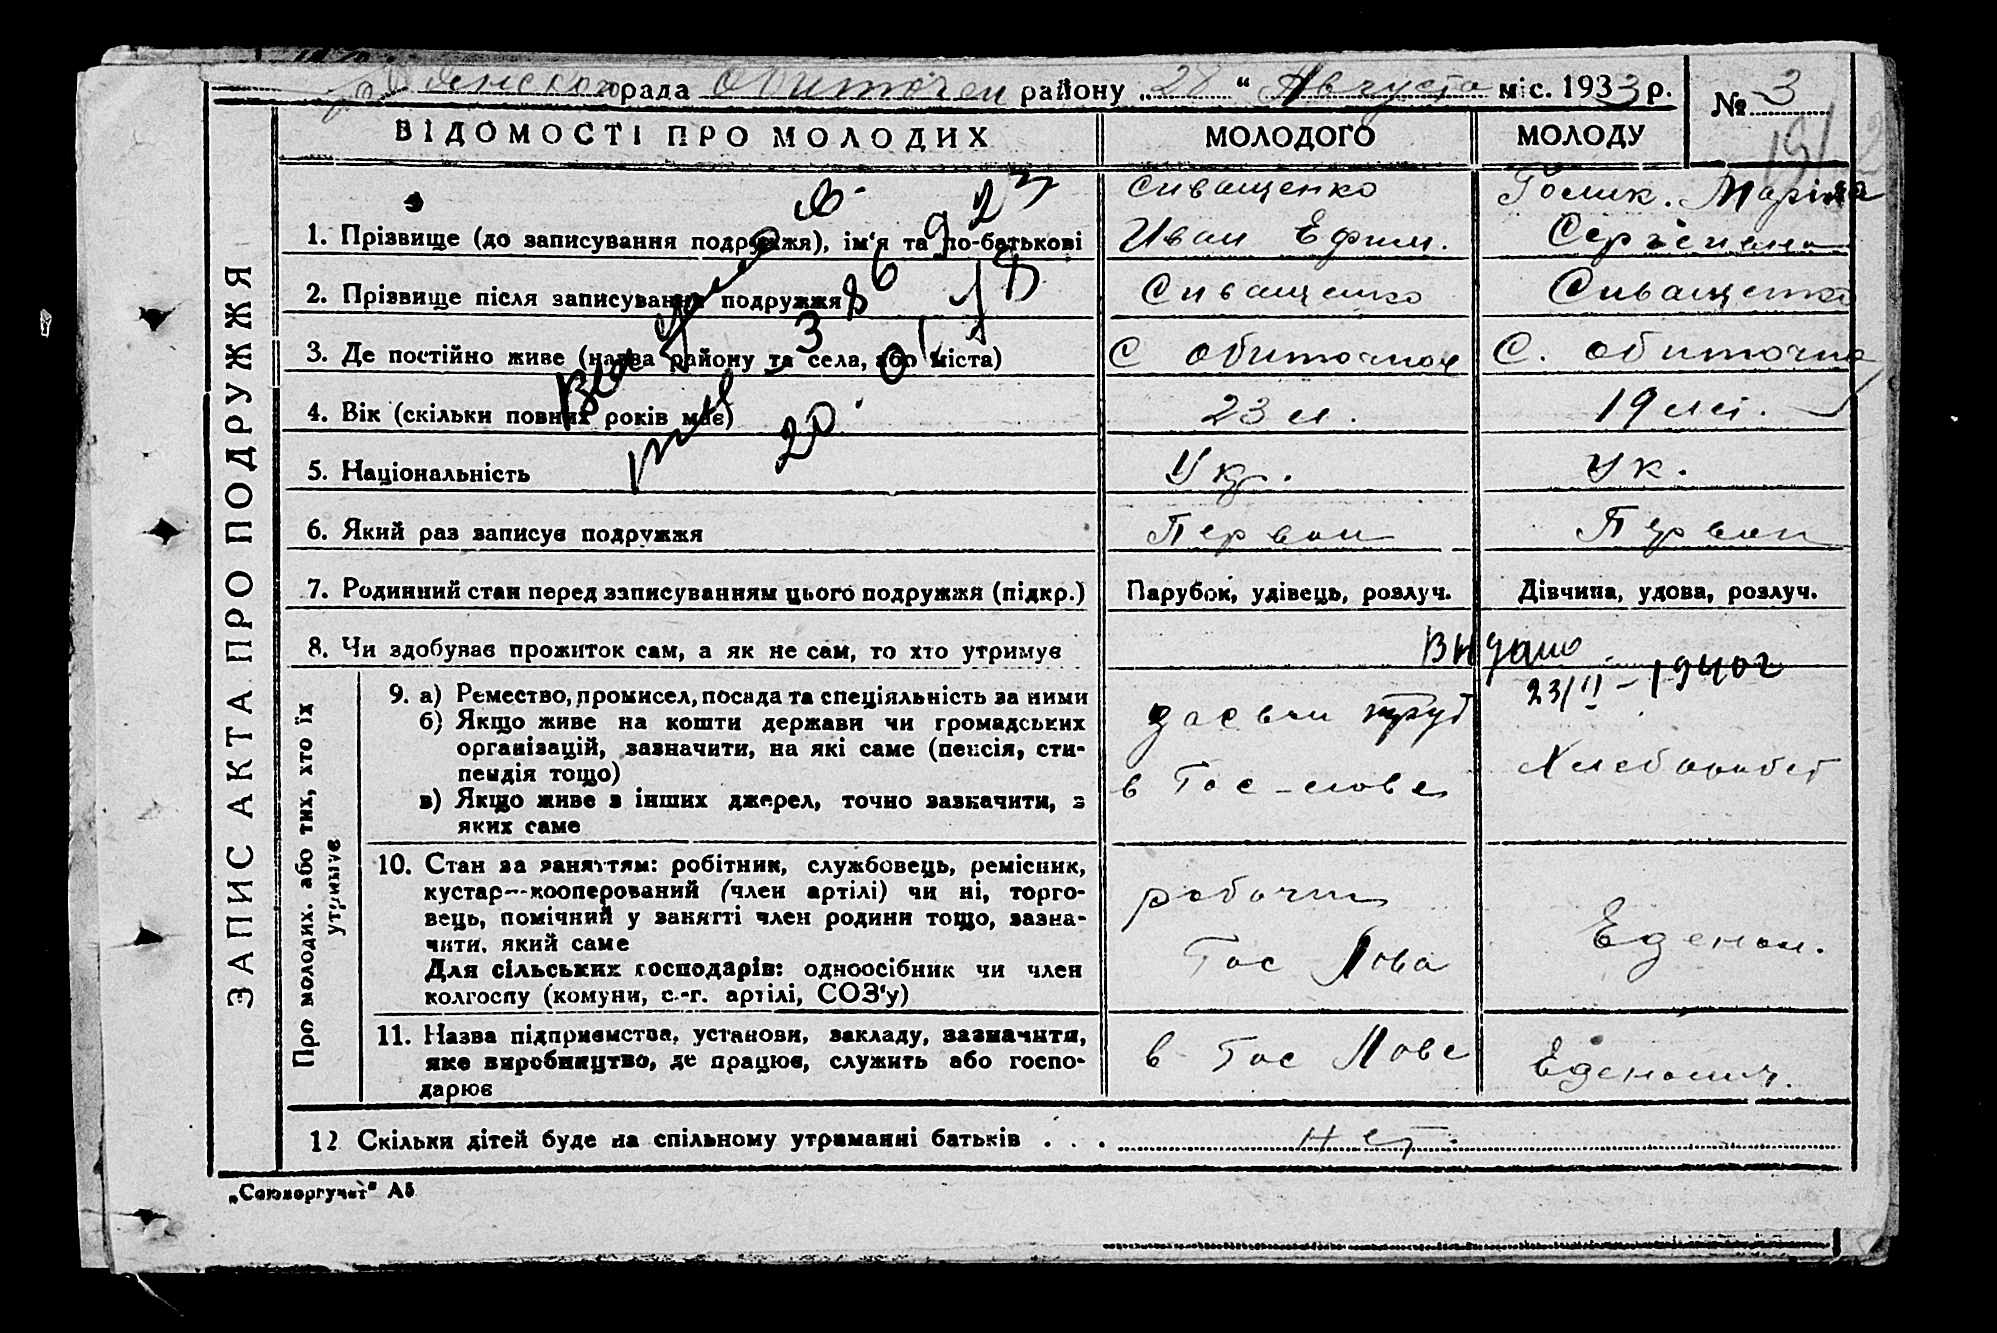 рада Обиточен району „ 28 “ Августа міс. 1933 р.
№ 3
ЗАПИС АКТА ПРО ПОДРУЖЖЯ
ВІДОМОСТІ ПРО МОЛОДИХ
МОЛОДОГО
МОЛОДУ
1. Прізвище (до записування подружжя), ім'я та по-батькові
Сиващенко
Иван Ефим.
Голик. Марія
2. Прізвище після записування подружжя
Сиващенко
Сиващенко
3. Де постійно живе (назва району та села, або міста)
С Обиточная
С. Обиточна
4. Вік (скільки повних років має)
23 л.
19 лет.
5. Національність
Укр.
Ук.
6. Який раз записує подружжя
Первый
Первый
7. Родинний стан перед записуванням цього подружжя (підкр.)
Парубок, удівець, розлуч.
Дівчина, удова, розлуч.
8. Чи здобував прожиток сам, а як не сам, то хто утримує
Видано
23/II – 1940 г
Про молодих, або тих, хто їх утримує
9. а) Ремество, промисел, посада та спеціяльність за ними
б) Якщо живе на кошти держави чи громадських
організацій, зазначити, на які саме (пенсія, сти-
пендія тощо)
в) Якщо живе з інших джерел, точно зазначити, з
яких саме
10. Стан за заняттям: робітник, службовець, ремісник,
кустар—кооперований (член артілі) чи ні, торго-
вець, помічний у занятті член родини тощо, зазна-
чити, який саме
Для сільських господарів: одноосібник чи член
колгоспу (комуни, с.-г. артілі, СОЗ'у)
рабочий
Гос Лова
11. Назва підприємства, установи, закладу, зазначити,
яке виробництво, де працює, служить або госпо-
дарює
в Гос Лове
12 Скільки дітей буде на спільному утриманні батьків . . .
нет.
„Союзоргучет" А5